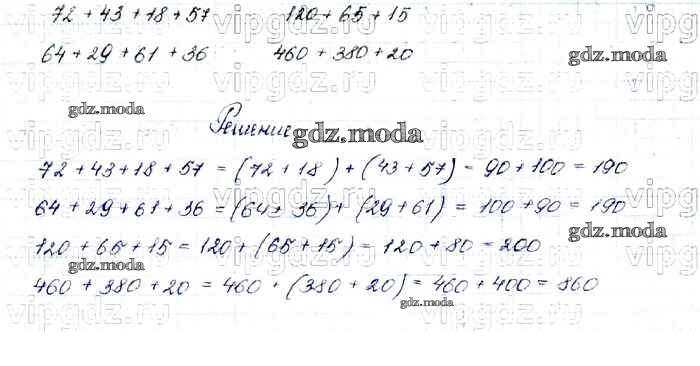 72 + 43 + 18 + 57 120 + 65 + 15
64 + 29 + 61 + 36 460 + 380 + 20
gdz.moda
Решение
gdz.moda
72 + 43 + 18 + 57 = (72 + 18) + (43 + 57) = 90 + 100 = 190
64 + 29 + 61 + 36 = (64 + 36) + (29 + 61) = 100 + 90 = 190
gdz.moda
120 + 65 + 15 = 120 + (65 + 15) = 120 + 80 = 200
gdz.moda
460 + 380 + 20 = 460 + (380 + 20) = 460 + 400 = 860
gdz.moda
vipgdz.ru